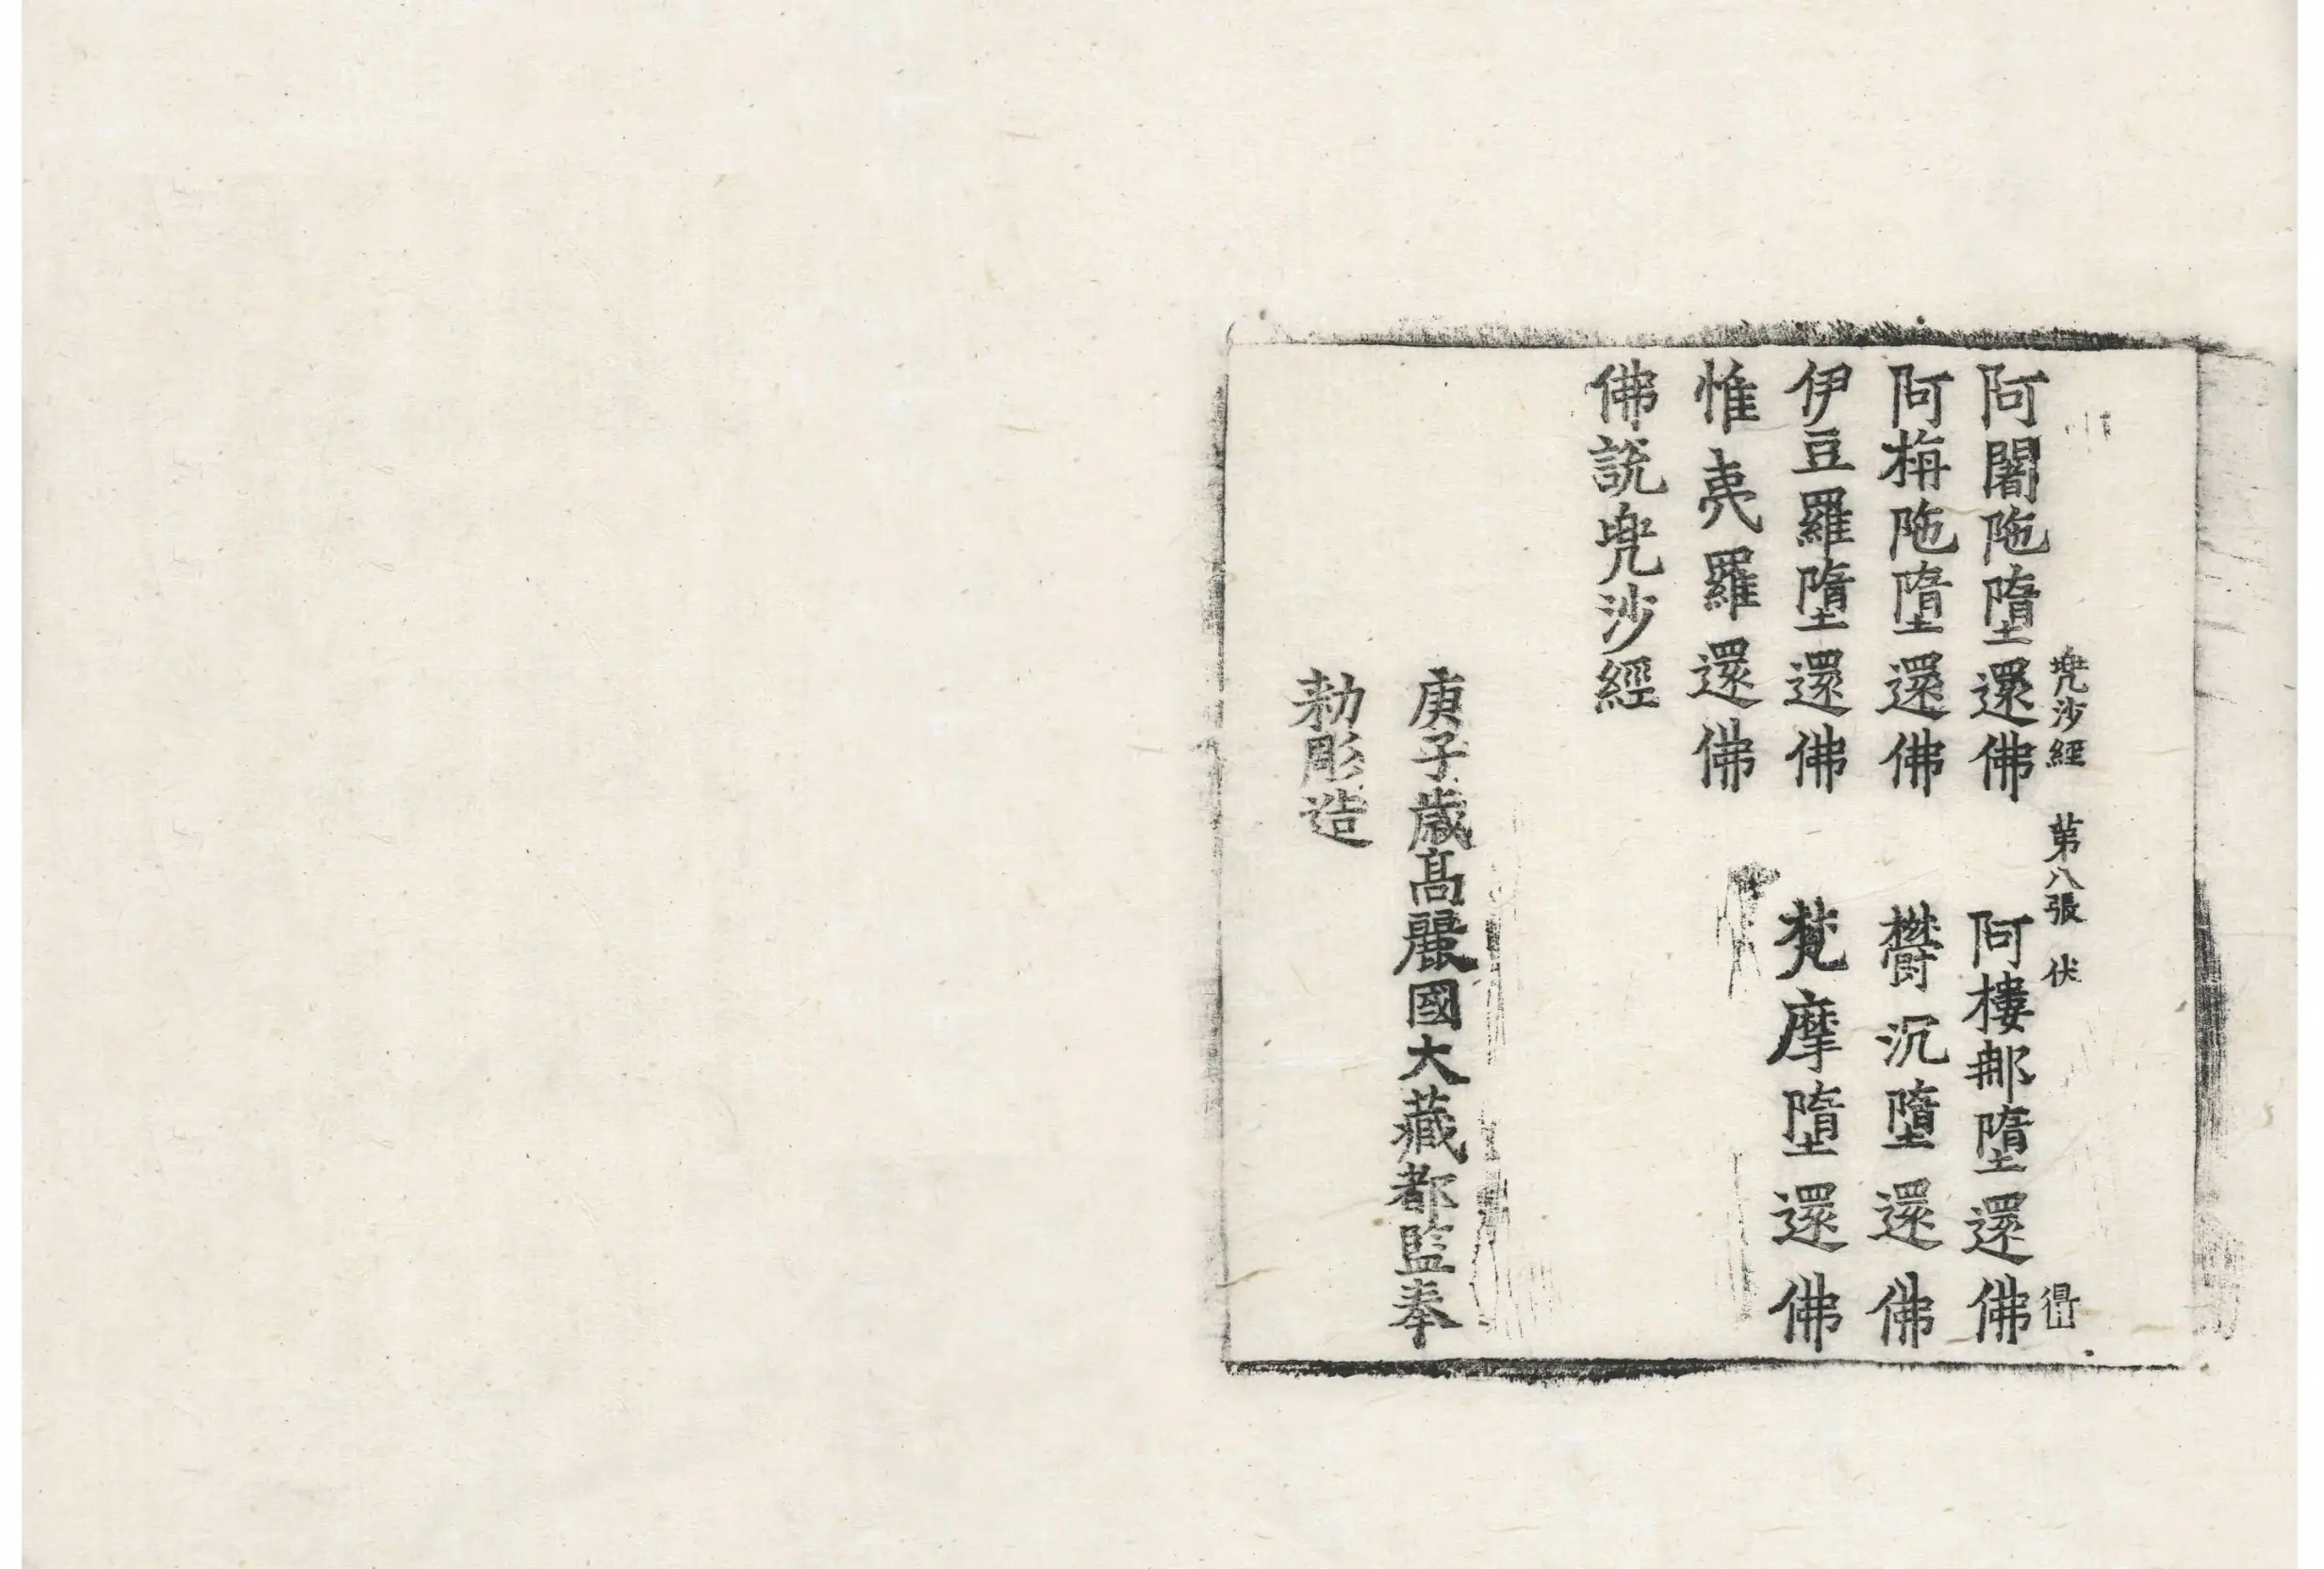 兜沙經 第八張 伏 得山
阿闍陁墮還佛 阿樓那墮還佛
阿栴陁墮還佛 欝沉墮還佛
伊豆羅墮還佛 梵摩墮還佛
惟夷羅還佛
佛說兜沙經
庚子歲高麗國大藏都監奉
勅彫造